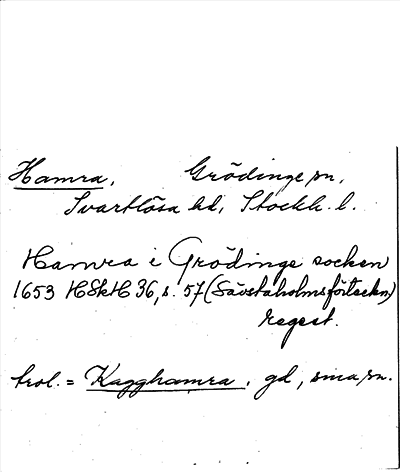 Hamra, Grödinge sn,
Svartlösa hd, Stockh. l.
Hamra i Grödinge socken
1653 HSkH 36, s. 57 (Sävstaholmsförteckn)
regest.
trol. = Kagghamra, gd, sma sn.